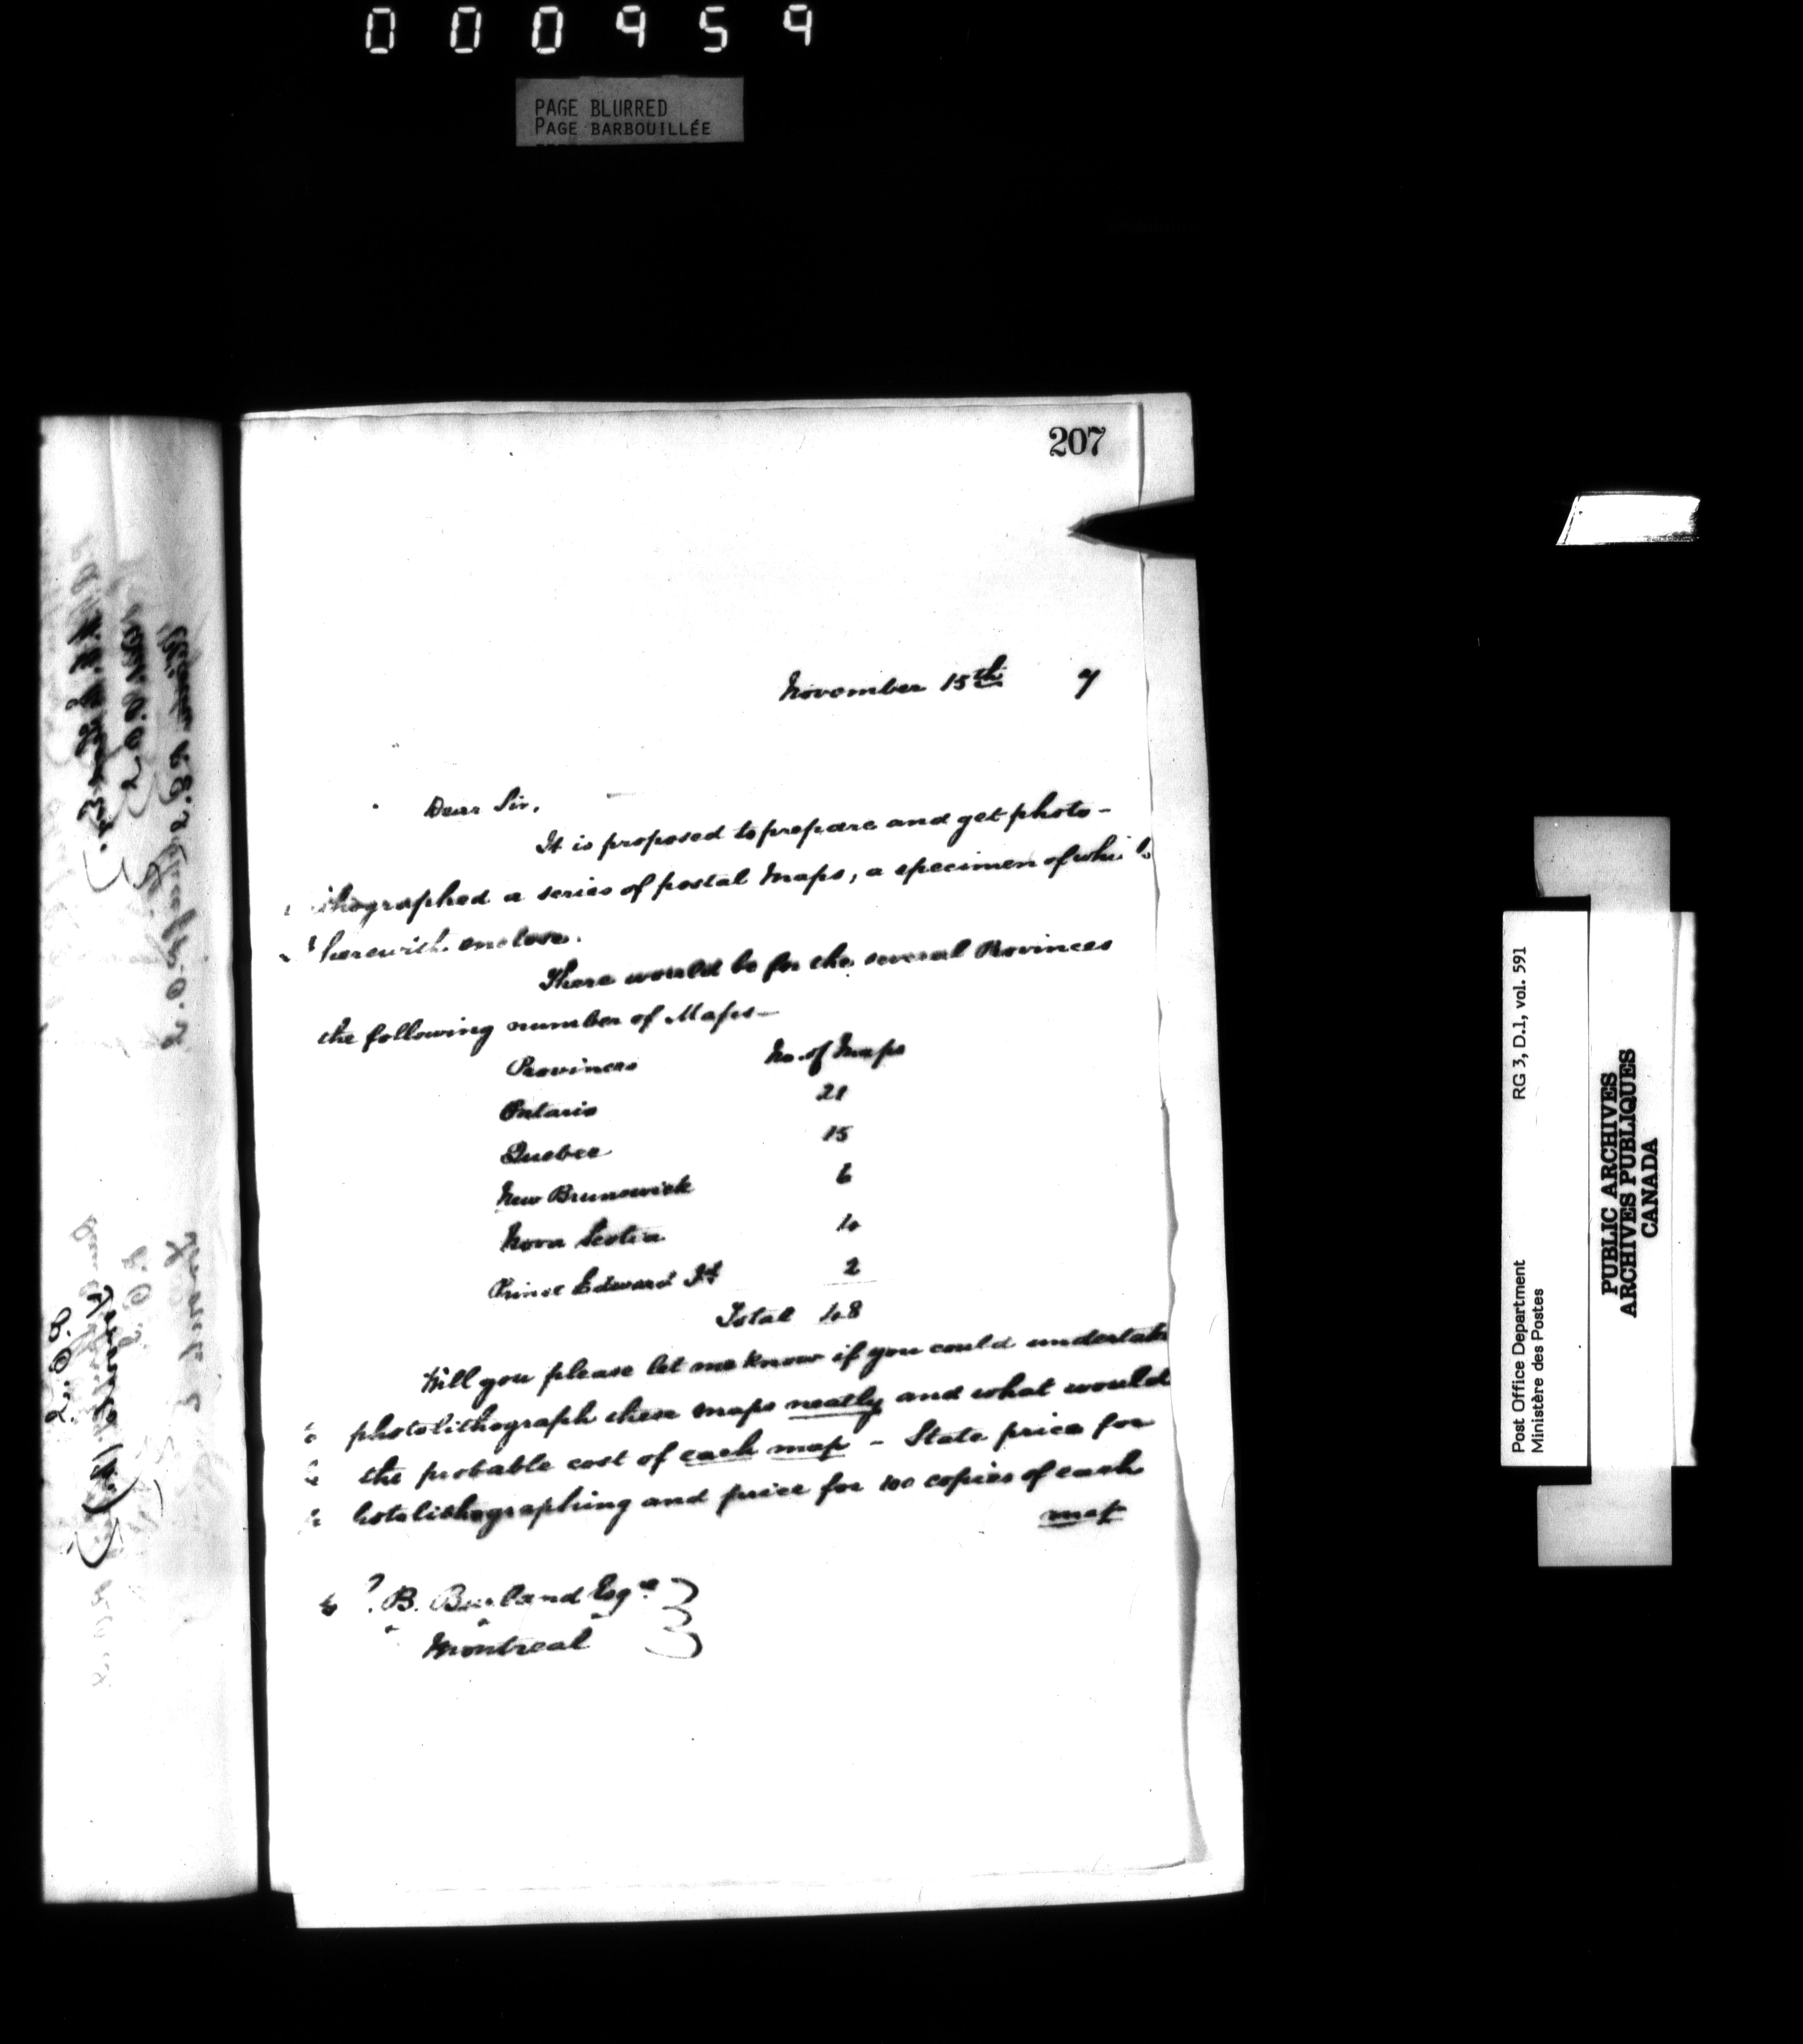 000959
PAGE BLURRED
PAGE BARBOUILLÉE
207
November 15th 7
Dear Sir,
It is proposed to prepare and get photo-
ithographed a series of postal Maps, a specimen of which
I herewith enclose.
There would be for the several Provinces
the following number of Maps—
Provinces No. of Maps
Ontario 21
Quebec 15
New Brunswick 6
Nova Scotia 4
Prince Edward Id 2
Total 48
Will you please let me know if you could undertake
photolithograph these maps neatly and what would
the probable cost of each map - State price for
hotolithographing and price for 100 copies of each
map
B. Burland Esqre
Montreal
Post Office Department RG 3, D.1, vol. 591
Ministère des Postes
PUBLIC ARCHIVES
ARCHIVES PUBLIQUES
CANADA